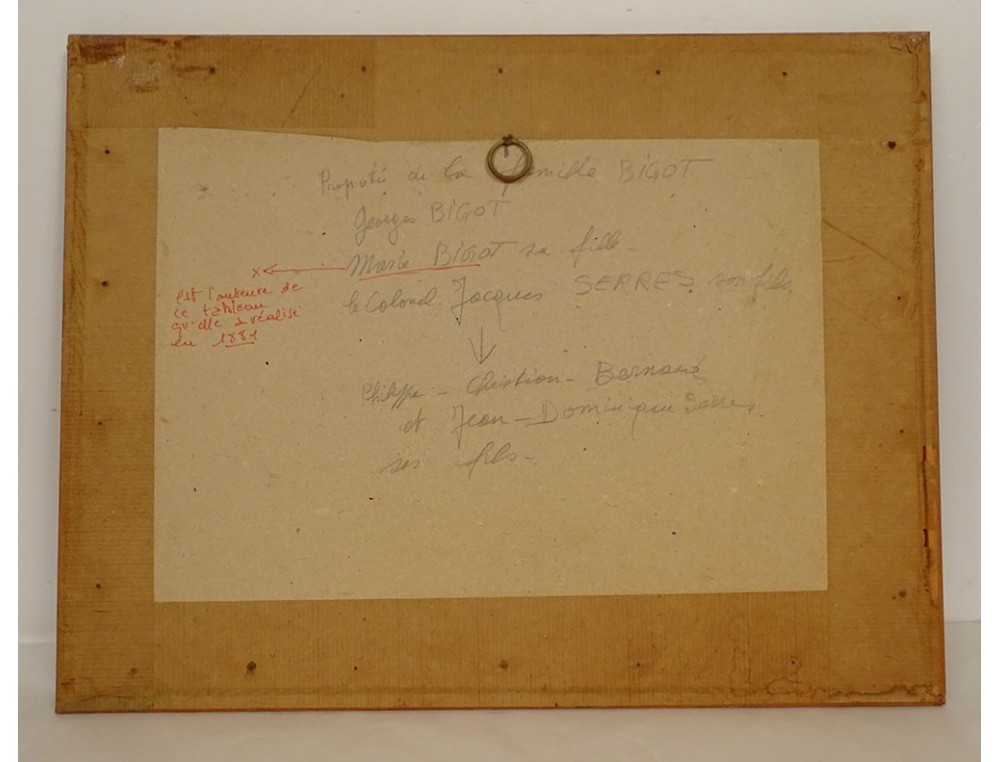 Propriété de la famille BIGOT
Georges BIGOT
Marie BIGOT sa fille -
le Colonel Jacques SERRES son fils.
x ←
est l'auteure de
ce tableau
qu'elle a réalisé
en 1881
↓
Philippe - Christian - Bernard
et Jean - Dominique Serres,
ses fils -